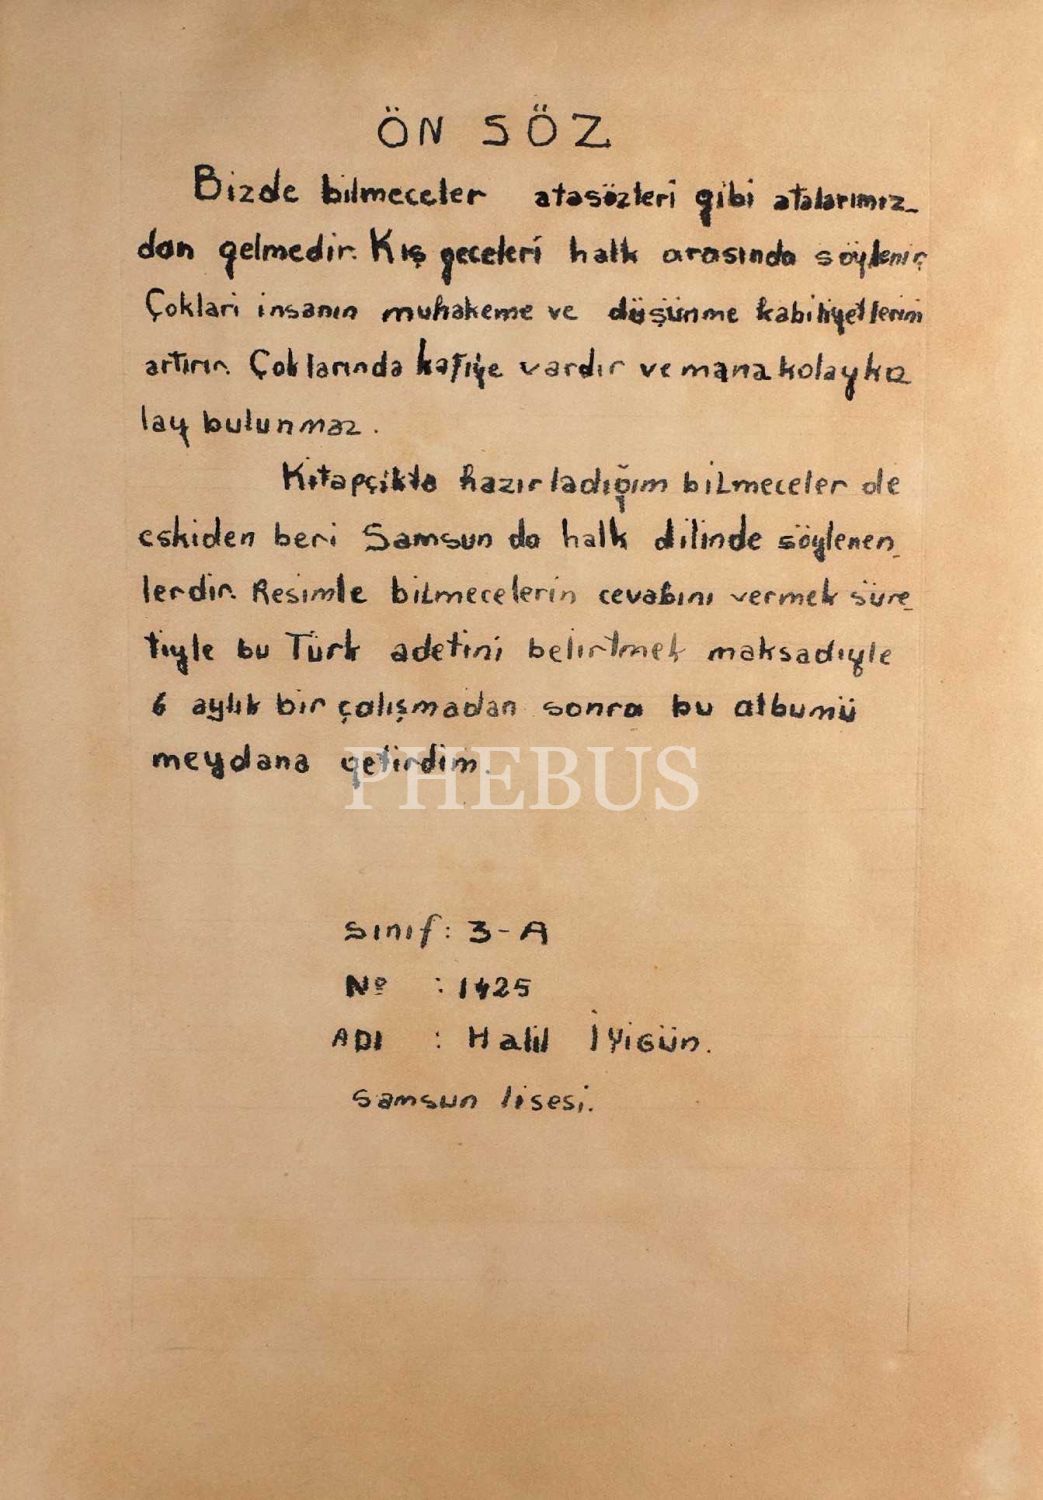 ÖN SÖZ
Bizde bilmeceler atasözleri gibi atalarımız_
dan gelmedir. Kış geceleri halk arasında söylenir
Çokları insanın muhakeme ve düşünme kabiliyetlerini
artırır. Çoklarında kafiye vardır ve mana kolay ko
lay bulunmaz.
Kitapçıkta hazırladığım bilmeceler de
eskiden beri Samsun da halk dilinde söylenen_
lerdir. Resimle bilmecelerin cevabını vermek süre_
tiyle bu Türk adetini belirtmek maksadıyle
6 aylık bir çalışmadan sonra bu albumü
meydana getirdim.
PHEBUS
Sınıf: 3-A
Nº : 1425
ADI : Halil İyigün.
Samsun lisesi.